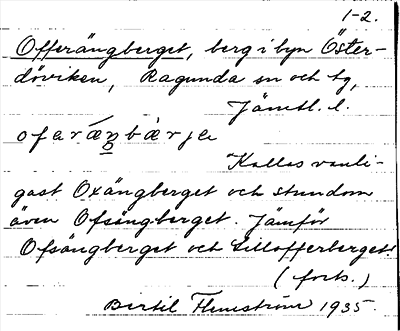 1-2.
Offerängberget, berg i byn Öster-
döviken, Ragunda sn och tg,
Jämtl. l.
ofaræŋbærje
"Kallas vanli-
gast Oxängberget och stundom
även Ofsängberget. Jämför
Ofsängberget och Lillofferberget."
(forts.)
Bertil Flemström 1935.